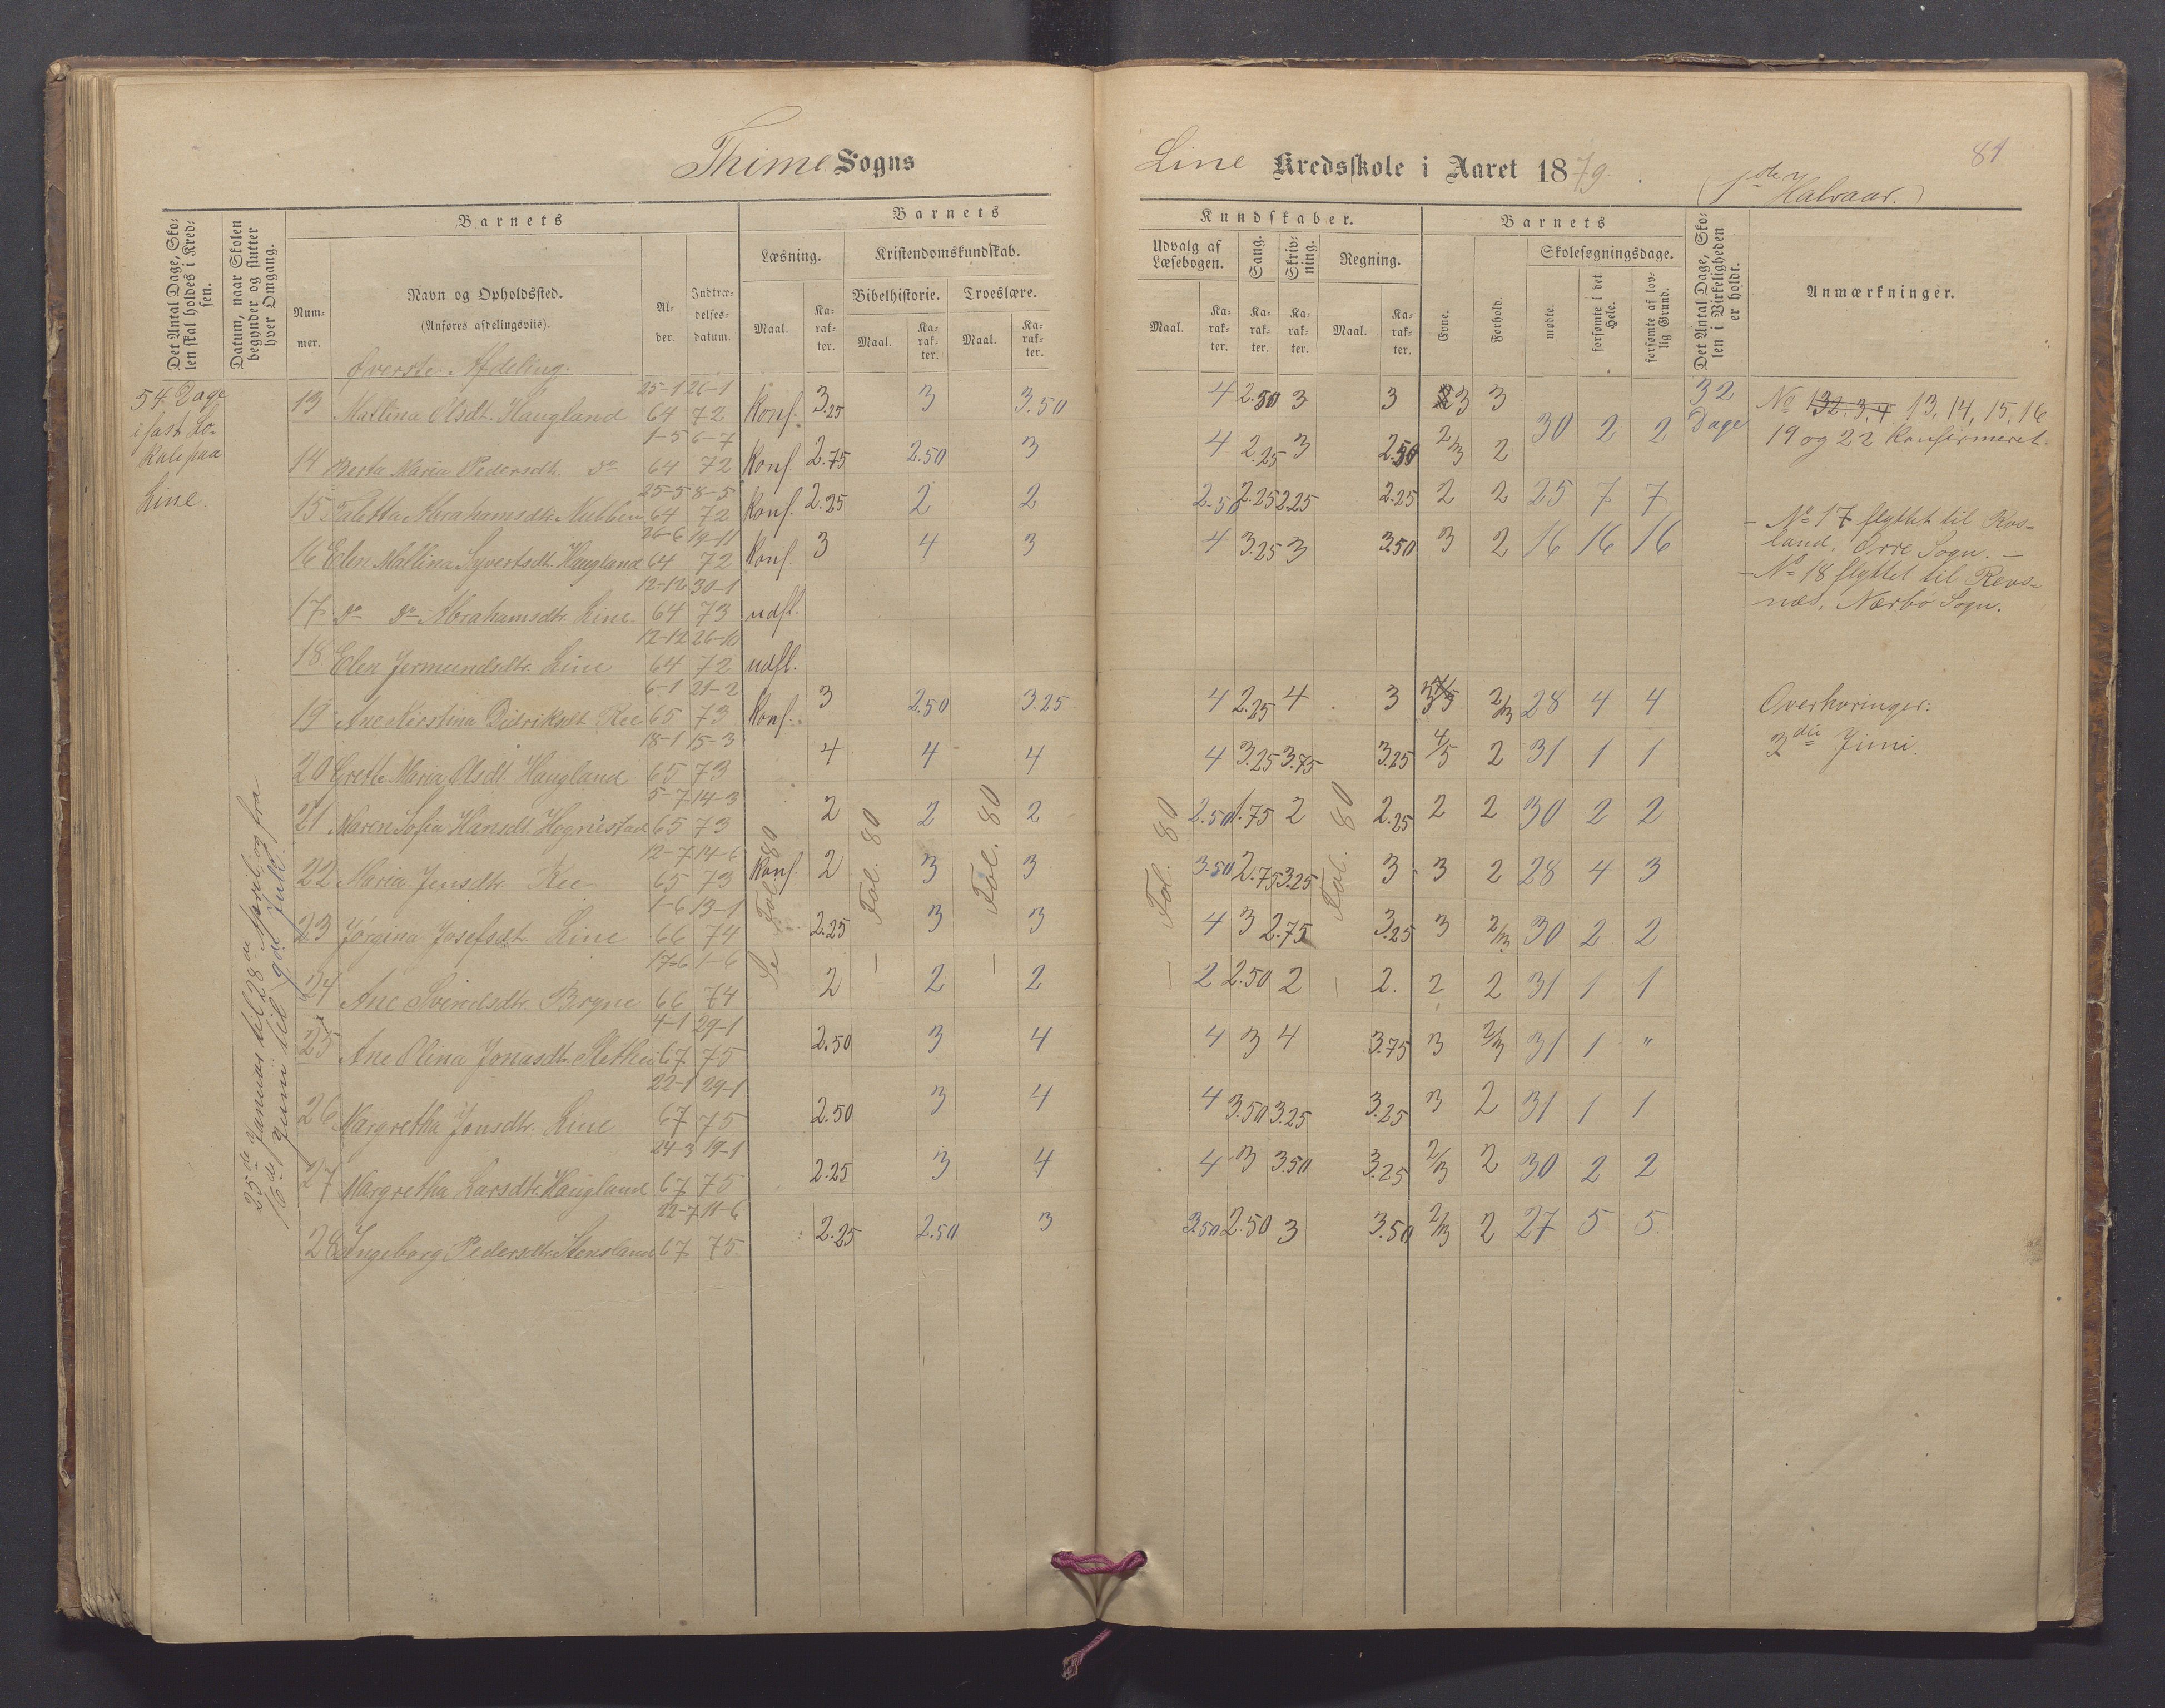 Thime Sogns
Line Kredsskole i Aaret 1879.
(1ste Halvaar.)
81
Det Antal Dage, Sko-
len skal holdes i Kred-
sen.
Datum, naar Skolen
begynder og slutter
hver Omgang.
Barnets
Num-
mer.
Navn og Opholdssted.
(Anføres afdelingsviis).
Al-
der.
Indtræ-
delses-
datum.
Barnets
Læsning.
Kristendomskundskab.
Bibelhistorie. Troeslære.
Maal. Ka-rak-ter. Maal. Ka-rak-ter. Maal. Ka-rak-ter.
Kundskaber.
Udvalg af Læsebogen. Sang. Skriv-ning. Regning.
Maal. Ka-rak-ter. Ka-rak-ter. Ka-rak-ter. Maal. Ka-rak-ter.
Barnets
Evne. Forhold.
Skolesøgningsdage.
mødte. forsømte i det Hele. forsømte af lov-lig Grund.
Det Antal Dage, Sko-
len i Virkeligheden
er holdt.
Anmærkninger.
Øverste Afdeling.
54 Dage
i fast Lo-
kale paa
Line.
25de Januar til 28de April og fra
16de Juni til 9de Juli.
25-1 26-1
13 Mallina Olsdt. Haugland 64 72 Konf. 3.25 3 3.50 4 2.50 3 3 3 3
1-5 6-7
14 Berta Maria Pedersdt. do 64 72 Konf. 2.75 2.50 3 4 2.25 3 2.50 2/3 2 30 2 2
25-5 8-5
15 Taletta Abrahamsdt. Nubben 64 72 Konf. 2.25 2 2 2.50 2.25 2.25 2.25 2 2 25 7 7
26-6 19-11
16 Elen Mallina Syvertsdt. Haugland 64 72 Konf. 3 4 3 4 3.25 3 3.50 3 2 16 16 16
12-12 30-1
17 do do Abrahamsdtr. Line 64 73 udfl.
12-12 26-10
18 Elen Jermundsdtr. Line 64 72 udfl.
6-1 21-2
19 Ane Kirstina Didriksdt. Ree 65 73 Konf. 3 2.50 3.25 4 2.25 4 3 2/3 28 4 4
18-1 15-3
20 Grette Maria Olsdt. Haugland 65 73 4 4 4 4 3.25 3.75 3.25 4/5 2 31 1 1
5-7 14-3
21 Maren Sofia Hansdt. Hognestad 65 73 2 2 2 2.50 1.75 2 2.25 2 2 30 2 2
12-7 14-6
22 Maria Jensdtr. Ree 65 73 Konf. 2 3 3 3.50 2.75 3.25 3 3 2 28 4 3
1-6 13-1
23 Jørgina Josefsdt. Line 66 74 2.25 3 3 4 3 2.75 3.25 3 2/3 30 2 2
17-6 1-6
24 Ane Svendsdtr. Bryne 66 74 2 2 2 2 2.50 2 2. 2 2 31 1 1
4-1 29-1
25 Ane Olina Jonasdt. Slethei 67 75 2.50 3 4 4 3 4 3.75 3 2/3 31 1 "
22-1 29-1
26 Margretha Jonsdtr. Line 67 75 2.50 3 4 4 3.50 3.25 3.25 3 2 31 1 1
24-3 19-1
27 Margretha Larsdtr. Haugland 67 75 2.25 3 4 4 3 3.50 3.25 2/3 2 30 2 2
22-7 11-6
28 Ingeborg Pedersdtr. Stensland 67 75 2.25 2.50 3 3.50 2.50 3 3.50 2/3 2 27 5 5
Se Fol. 80
— Fol. 80
— Fol. 80
— Fol. 80
— Fol. 80
32
Dage
No 132.3,4 13, 14, 15, 16
19 og 22 Konfirmeret.
- No 17 flyttet til Ros-
land. Orre Sogn. -
- No 18 flyttet til Revs-
næs, Nærbø Sogn.
Overhøringer:
3die Juni.